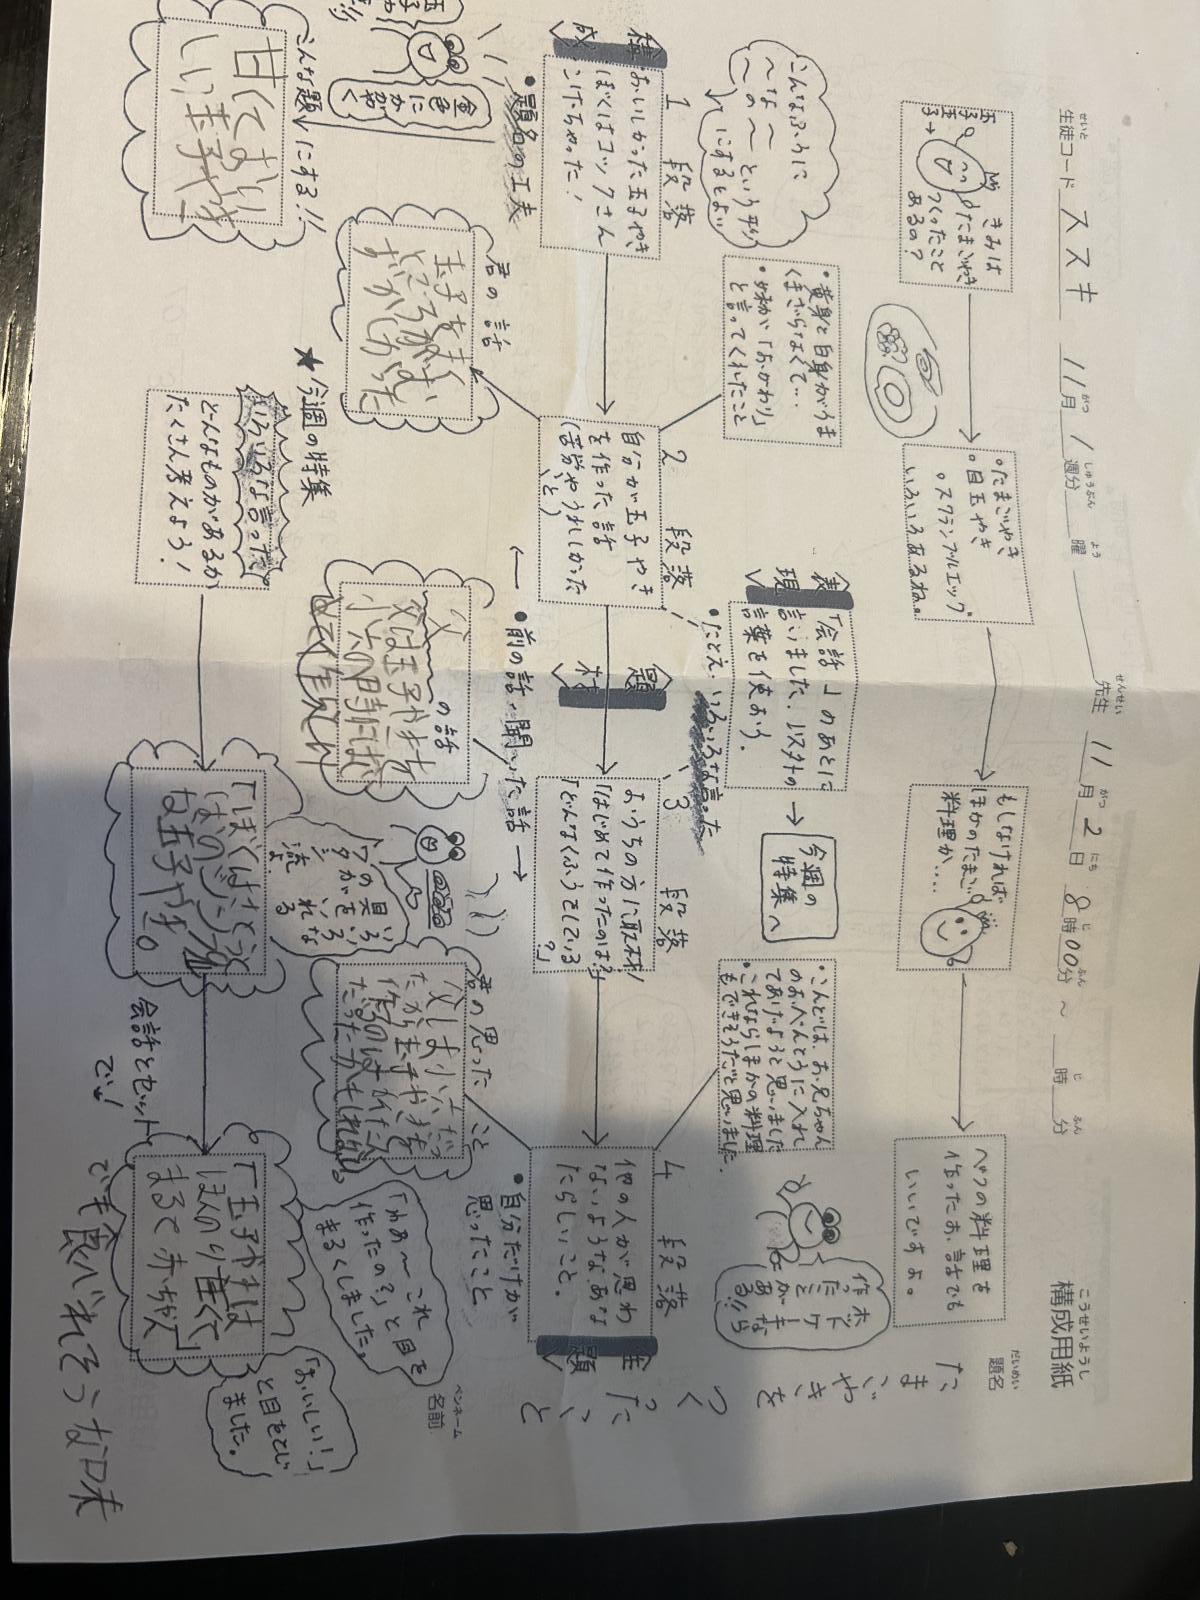 構成用紙
こうせいようし
生徒コード ススキ 11月1週分 曜 先生 11月2日8時00分～ 時 分
題名
だいめい
たまごやきを
つくったこと
ペンネーム
名前
きみは
たまごやき
つくったこと
あるの？
・たまごやき
・目玉やき
・スクランブルエッグ
いろいろあるね。
もしなければ
ほかのたまご
料理か....
べつの料理を
作ったお話でも
いいですよ。
こんなふうに
～な～
～の～という形
にするとよい
・黄身と白身がうま
くまざらなくて…
・妹が「おかわり」
と言ってくれたこと
表現
「会話」のあとに
言いました、以外の
言葉を使おう。
今週の
特集へ
・たとえ・いろいろな言った
・こんどは、お兄ちゃん
のおべんとうに入れ
てあげようと思いました
・これならほかの料理
もできそうだと思いました。
ホットケーキなら
作ったこと
がある!!
構成
1段落
おいしかった玉子やき
ぼくはコックさん
こげちゃった！
・題名の工夫
2段落
自分が玉子やき
を作った話
(苦労やうれしかった
こと)
題材
3段落
おうちの方に取材
「はじめて作ったのは？」
「どんなくふうをしている
？」
・前の話・聞いた話→
4段落
他の人が思わ
ないようなあな
たらしいこと。
主題
・自分だけが
思ったこと
金色
にかがやく
こんな題
にする!!
甘くておい
しい玉子やき
君の話
玉子をまく
ところがむず
ずかしかった
父
の話
父は玉子やきを
小六の時には
君の思ったこと
「わあ～これ
作ったの？」と目を
まるくしました。
★今週の特集
いろいろな言った
どんなものがあるか
たくさん考えよう！
会話とセット
でね！
「玉子やきは
ほんのり甘くて
まるで赤ちゃん
でも食べれそうな口味
「おいしい！」
と目をとじ
ました。